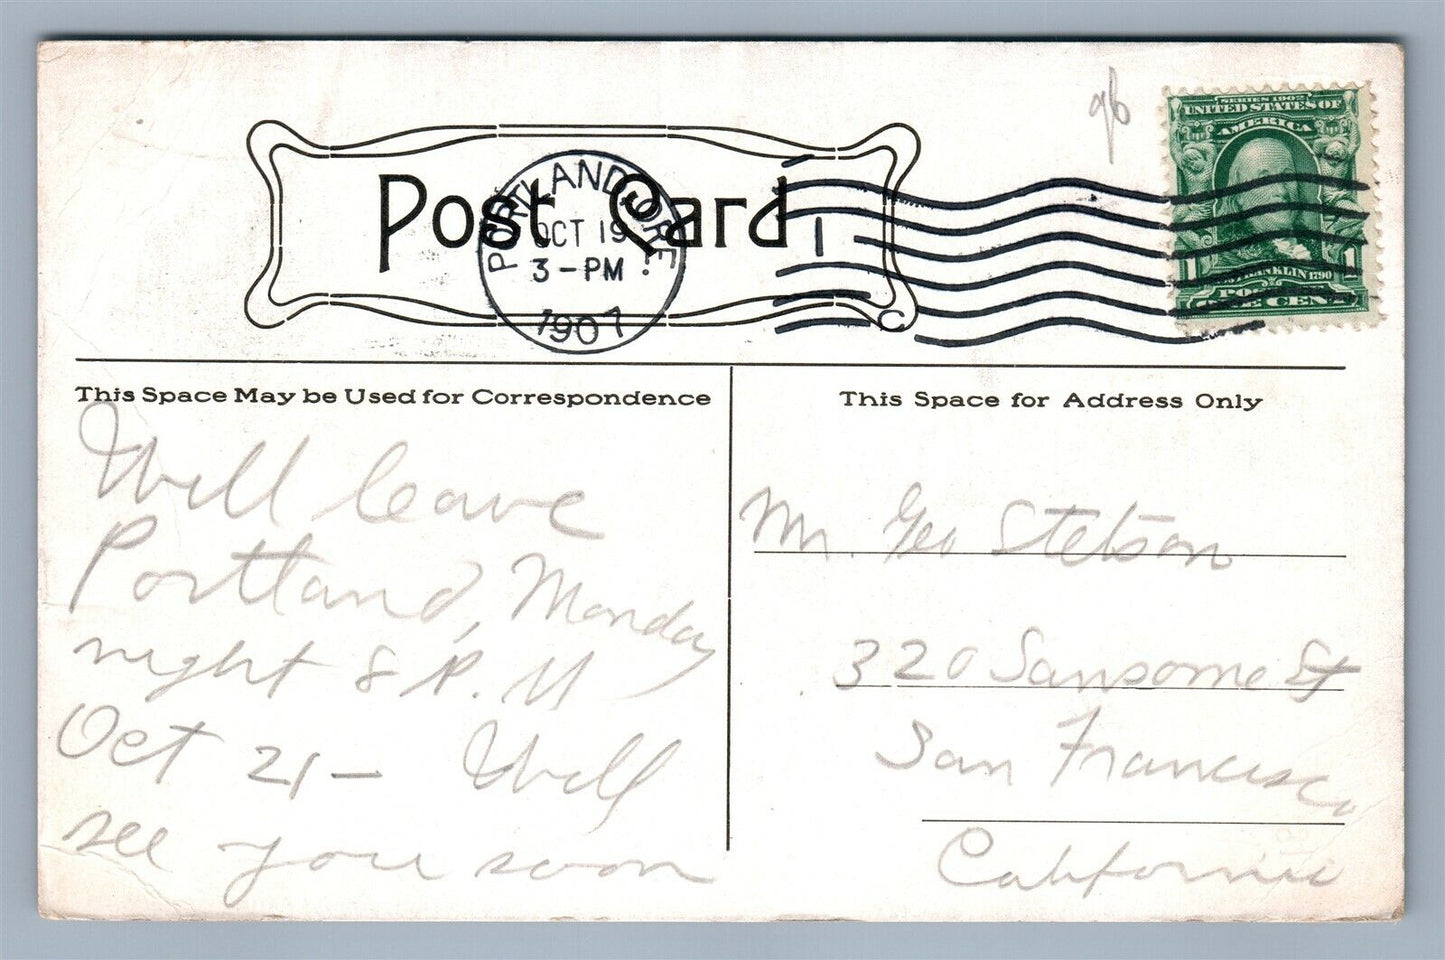 96
SERIES 1902
UNITED STATES OF
AMERICA
Post Card
PORTLAND, ORE.
OCT 19
3-PM
1907
1
C
1 FRANKLIN 1790 1
This Space May be Used for Correspondence
Will leave
Portland, Monday
night 8 P. M
Oct 21 - Will
see you soon
This Space for Address Only
Mr. Geo Stetson
320 Sansome St
San Francisco
California